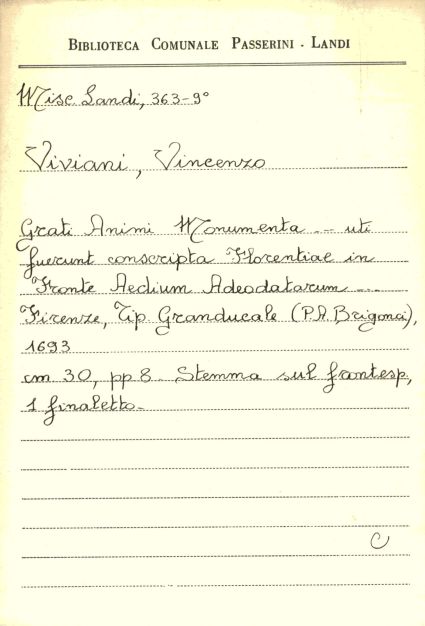 BIBLIOTECA COMUNALE PASSERINI - LANDI
Misc. Landi, 363-9°
Viviani, Vincenzo
Grati Animi Monumenta ... uti
fuerunt conscripta Florentiae in
Fronte Aedium Adeodatarum ...
Firenze, Tip. Granducale (P.A. Brigonci),
1693
cm 30, pp 8. Stemma sul frontesp.,
1 finaletto.
C